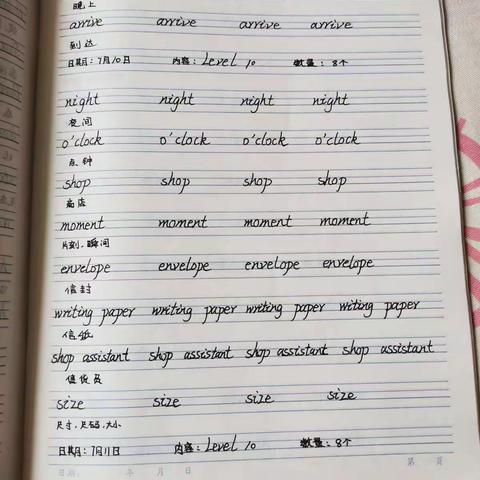 晚上
arrive arrive arrive arrive
到达
日期：7月10日 内容：Level 10 数量：8个
night night night night
夜间
o'clock o'clock o'clock o'clock
点钟
shop shop shop shop
商店
moment moment moment moment
片刻，瞬间
envelope envelope envelope envelope
信封
writing paper writing paper writing paper witing paper
信纸
shop assistant shop assistant shop assistant shop assistant
售货员
size size size size
尺寸，尺码，大小
日期：7月11日 内容：Level 10 数量：8个
日期： 年 月 日 第 页